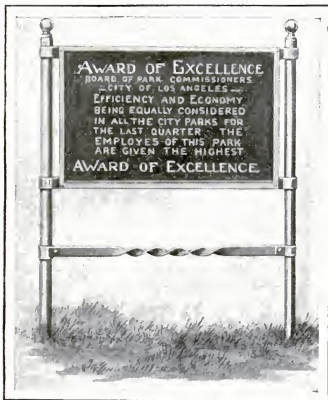 AWARD OF EXCELLENCE
BOARD OF PARK COMMISSIONERS
— CITY OF LOS ANGELES —
EFFICIENCY AND ECONOMY
BEING EQUALLY CONSIDERED
IN ALL THE CITY PARKS FOR
THE LAST QUARTER THE
EMPLOYES OF THIS PARK
ARE GIVEN THE HIGHEST
AWARD OF EXCELLENCE